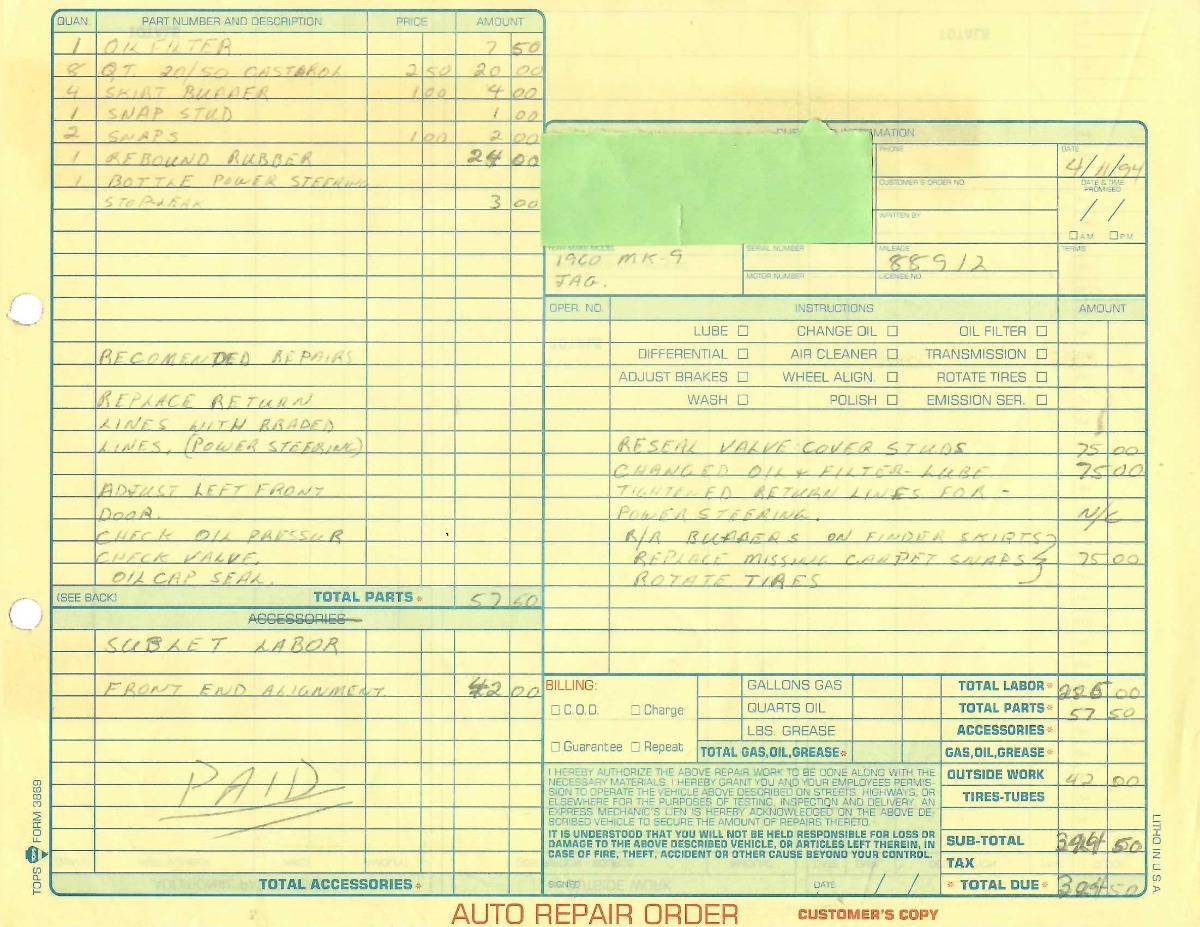 QUAN. PART NUMBER AND DESCRIPTION PRICE AMOUNT
1 OIL FILTER 7 50
8 QT. 20/50 CASTAROL 2 50 20 00
4 SKIRT BUMPER 1 00 4 00
1 SNAP STUD 1 00
2 SNAPS 1 00 2 00
1 REBOUND RUBBER 24 00
1 BOTTLE POWER STEERING
STOP-LEAK 3 00
RECOMENDED REPAIRS
REPLACE RETURN
LINES WITH BRADED
LINES, (POWER STEERING)
ADJUST LEFT FRONT
DOOR.
CHECK OIL PRESSUR
CHECK VALVE.
OIL CAP SEAL.
(SEE BACK) TOTAL PARTS* 57 50
ACCESSORIES
SUBLET LABOR
FRONT END ALIGNMENT 42 00
PAID
TOTAL ACCESSORIES*
TOPS FORM 3869
PHONE
DATE
4/11/94
CUSTOMER'S ORDER NO.
DATE & TIME
PROMISED
/ /
WRITTEN BY
☐ A.M. ☐ P.M.
SERIAL NUMBER
MILEAGE
TERMS
1960 MK-9
88912
JAG.
MOTOR NUMBER
LICENSE NO.
OPER. NO. INSTRUCTIONS AMOUNT
LUBE ☐ CHANGE OIL ☐ OIL FILTER ☐
DIFFERENTIAL ☐ AIR CLEANER ☐ TRANSMISSION ☐
ADJUST BRAKES ☐ WHEEL ALIGN. ☐ ROTATE TIRES ☐
WASH ☐ POLISH ☐ EMISSION SER. ☐
RESEAL VALVE COVER STUDS 75 00
CHANGED OIL & FILTER-LUBE 75 00
TIGHTENED RETURN LINES FOR -
POWER STEERING. N/C
R/R BUMPERS ON FINDER SKIRTS
REPLACE MISSING CARPET SNAPS 75 00
ROTATE TIRES
BILLING:
☐ C.O.D. ☐ Charge
☐ Guarantee ☐ Repeat
GALLONS GAS
QUARTS OIL
LBS. GREASE
TOTAL GAS,OIL,GREASE*
TOTAL LABOR* 225 00
TOTAL PARTS* 57 50
ACCESSORIES*
GAS,OIL,GREASE*
OUTSIDE WORK 42 00
TIRES-TUBES
SUB-TOTAL 50
TAX
* TOTAL DUE* 50
I HEREBY AUTHORIZE THE ABOVE REPAIR WORK TO BE DONE ALONG WITH THE
NECESSARY MATERIALS. I HEREBY GRANT YOU AND YOUR EMPLOYEES PERMIS-
SION TO OPERATE THE VEHICLE ABOVE DESCRIBED ON STREETS, HIGHWAYS, OR
ELSEWHERE FOR THE PURPOSES OF TESTING, INSPECTION AND DELIVERY. AN
EXPRESS MECHANIC'S LIEN IS HEREBY ACKNOWLEDGED ON THE ABOVE DE-
SCRIBED VEHICLE TO SECURE THE AMOUNT OF REPAIRS THERETO.
IT IS UNDERSTOOD THAT YOU WILL NOT BE HELD RESPONSIBLE FOR LOSS OR
DAMAGE TO THE ABOVE DESCRIBED VEHICLE, OR ARTICLES LEFT THEREIN, IN
CASE OF FIRE, THEFT, ACCIDENT OR OTHER CAUSE BEYOND YOUR CONTROL.
SIGNED DATE / /
LITHO IN U.S.A.
AUTO REPAIR ORDER CUSTOMER'S COPY